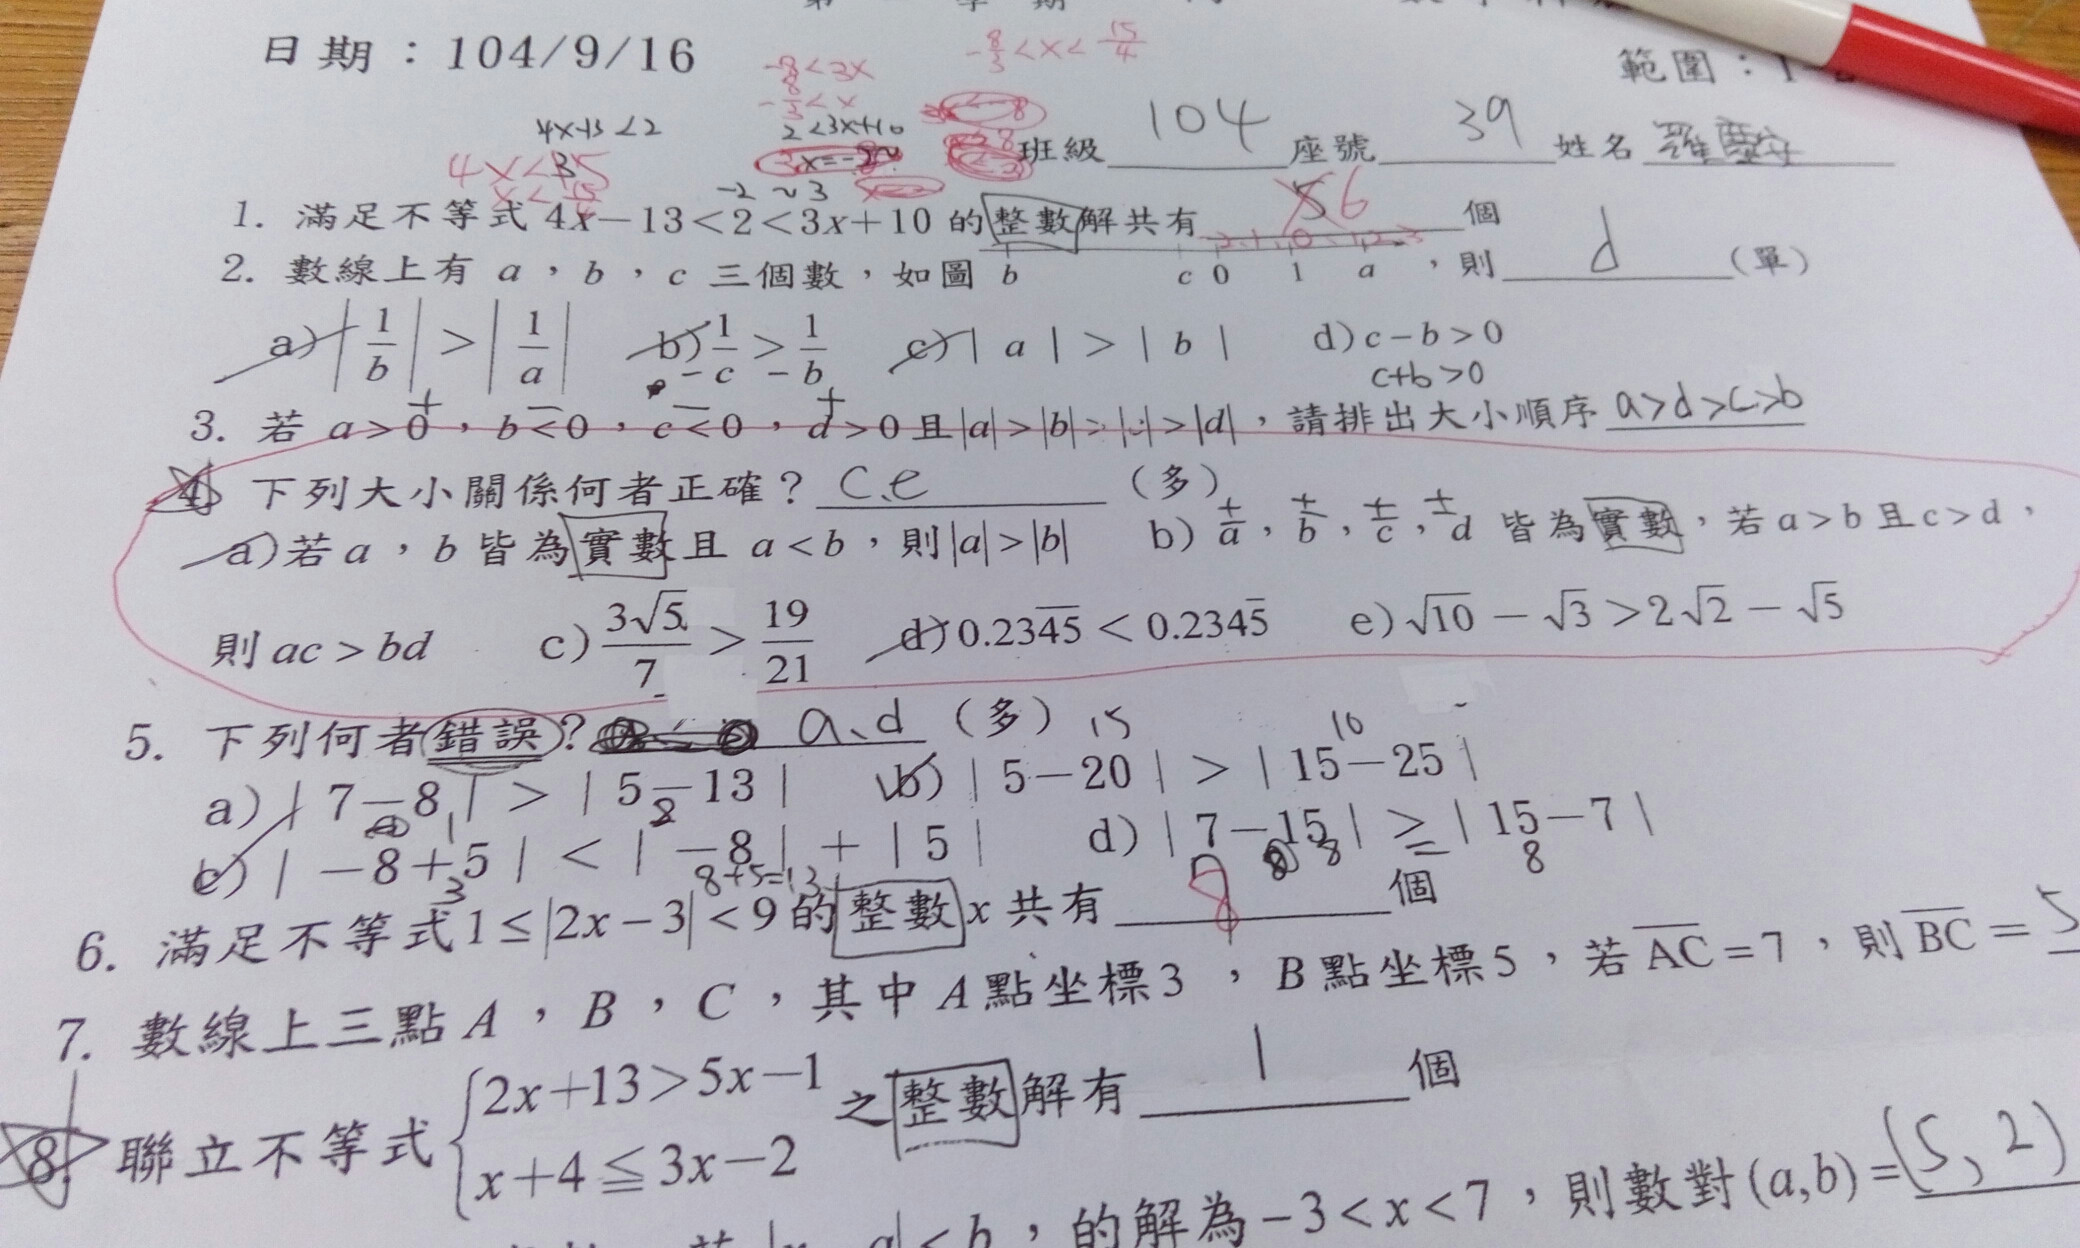 日期：104/9/16
範圍：1-
-8<3x
-8/3<x<15/4
-8/3<x
4x-13<2
2<3x+10
班級 104 座號 39 姓名 羅
4x<15
x<15/4
-2~3
1. 滿足不等式 4x－13<2<3x+10 的整數解共有 6 個
-2 -1 0 1 2 3
2. 數線上有 a，b，c 三個數，如圖 b c 0 1 a，則 d （單）
a) |1/b| > |1/a| b) 1/-c > 1/-b c) | a | > | b | d) c－b > 0
c+b>0
+ － － +
3. 若 a>0，b<0，c<0，d>0 且 |a|>|b|>|c|>|d|，請排出大小順序 a>d>c>b
4. 下列大小關係何者正確？ c.e （多）
± ± ± ±
a) 若 a，b 皆為實數且 a<b，則|a|>|b| b) a，b，c，d 皆為實數，若 a>b 且 c>d，
則 ac>bd c) 3√5/7 > 19/21 d) 0.234̅5̅ < 0.2345̅ e) √10 － √3 > 2√2 － √5
5. 下列何者錯誤？ a、d （多） 15 10
a) | 7－8 | > | 5－13 | b) | 5－20 | > | 15－25 |
1 8
c) | －8+5 | < | －8 | + | 5 | d) | 7－15 | ≥ | 15－7 |
3 8+5=13 8 8
6. 滿足不等式 1≤|2x－3|<9 的整數 x 共有 8 個
7. 數線上三點 A，B，C，其中 A 點坐標 3，B 點坐標 5，若 A̅C̅=7，則 B̅C̅= 5
8. 聯立不等式 {2x+13>5x－1 之整數解有 1 個
x+4≦3x－2
的解為－3<x<7，則數對(a,b)=(5,2)